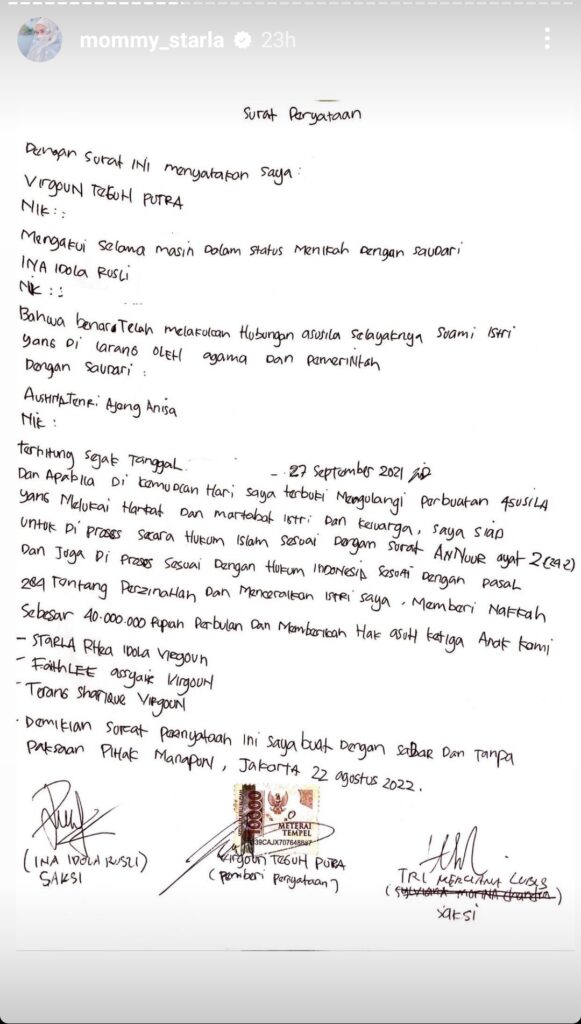 mommy_starla 23h
Surat Peryataan
Dengan surat INI menyatakan saya :
VIRGOUN TEGUH PUTRA
NIK : :
Mengakui selama masih Dalam status Menikah Dengan saudari
INA IDOLA RUSLI
NIK : :
Bahwa benar Telah melakukan Hubungan asusila selayaknya suami istri
yang Di larang oleh agama Dan pemerintah
Dengan saudari :
Tenri Ajeng Anisa
NIK :
terhitung sejak Tanggal - 27 September 2021
Dan Apabila Di kemudian Hari saya terbukti Mengulangi perbuatan ASUSILA
yang Melukai Harkat Dan martabat istri Dan keluarga, saya siap
untuk Di proses secara Hukum Islam sesuai Dengan surat ANNUUR ayat 2 (24:2)
Dan Juga Di proses sesuai Dengan Hukum INDONESIA sesuai Dengan pasal
284 Tentang Perzinahan Dan Menceraikan istri saya, Memberi Nafkah
Sebesar 40.000.000 Rupiah Perbulan Dan Memberikan Hak asuh ketiga Anak kami
- STARLA RHea IDOLA VIRGOUN
- FaithLEE assyaire VIRGOUN
- Terang Sharique VIRGOUN
. Demikian surat Peernyataan Ini saya buat Dengan saBar Dan Tanpa
paksaan PIHAK Manapun, Jakarta 22 agostus 2022.
10000
METERAI
TEMPEL
39CAJX707648887
(INA IDOLA RUSLI)
SAKSI
Virgoun TEGUH PUTRA
(pemberi peryataan)
TRI MERCIANA LUBIS
SAKSI